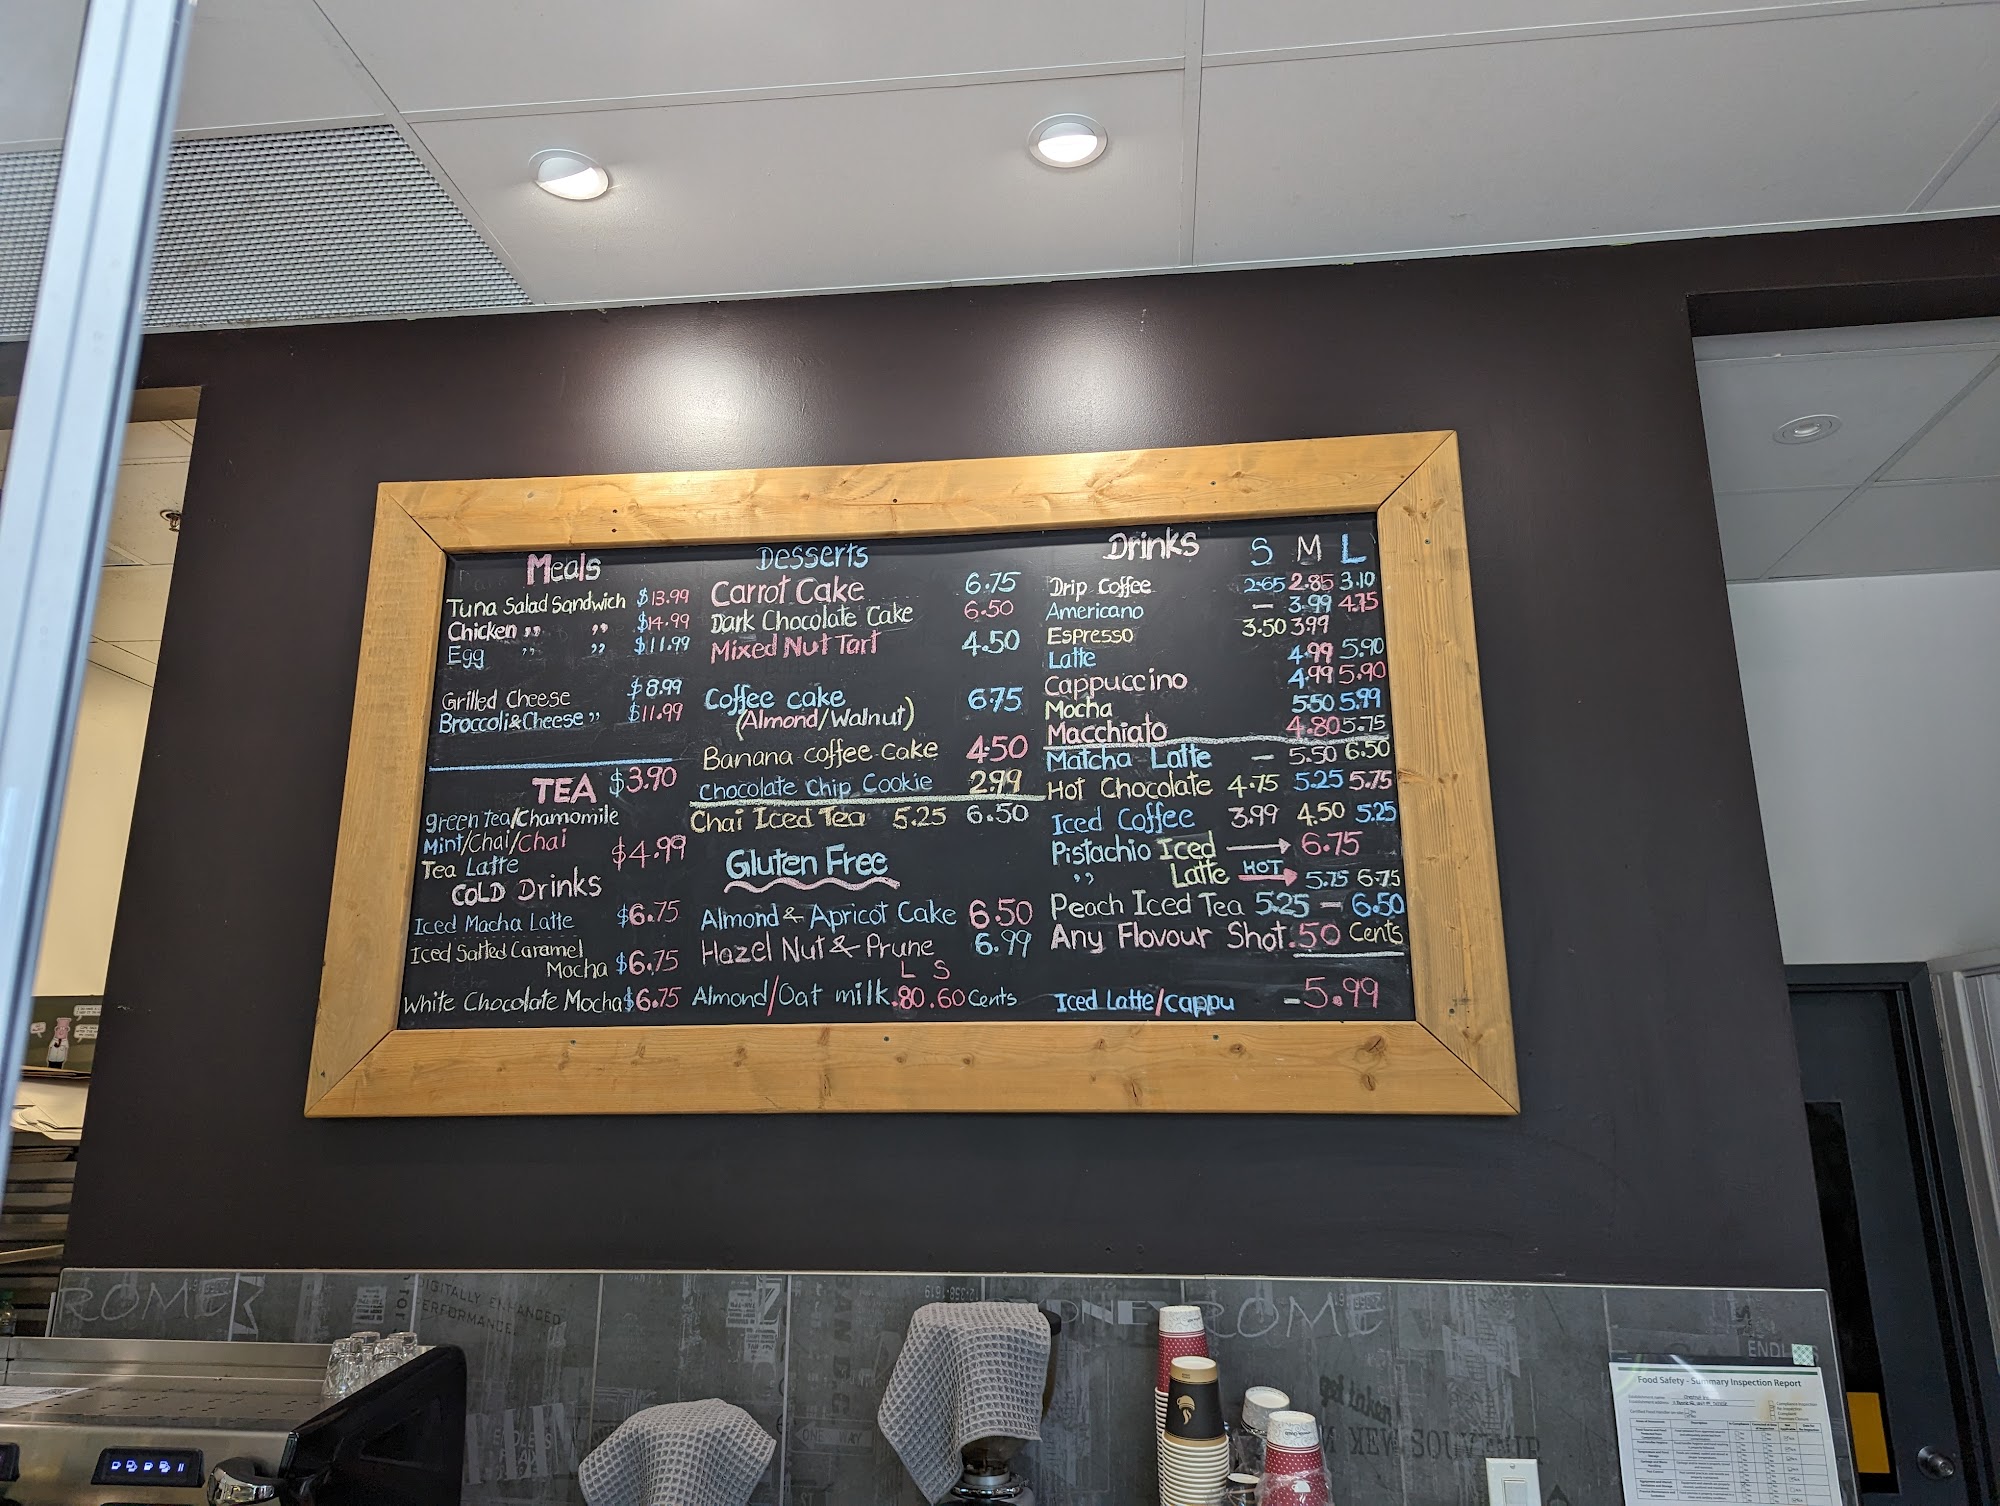 Meals
Tuna Salad Sandwich $13.99
Chicken ,, ,, $14.99
Egg ,, ,, $11.99
Grilled Cheese $8.99
Broccoli & Cheese ,, $11.99
TEA $3.90
green tea/Chamomile
Mint/Chai/Chai
Tea Latte $4.99
COLD Drinks
Iced Macha Latte $6.75
Iced Salted Caramel
Mocha $6.75
White Chocolate Mocha $6.75
Desserts
Carrot Cake 6.75
Dark Chocolate Cake 6.50
Mixed Nut Tart 4.50
Coffee cake 6.75
(Almond/Walnut)
Banana coffee cake 4.50
Chocolate Chip Cookie 2.99
Chai Iced Tea 5.25 6.50
Gluten Free
Almond & Apricot Cake 6.50
Hazel Nut & Prune 6.99
L S
Almond/Oat milk .80 .60 Cents
Drinks S M L
Drip Coffee 2.65 2.85 3.10
Americano — 3.99 4.75
Espresso 3.50 3.99
Latte 4.99 5.90
Cappuccino 4.99 5.90
Mocha 5.50 5.99
Macchiato 4.80 5.75
Matcha Latte — 5.50 6.50
Hot Chocolate 4.75 5.25 5.75
Iced Coffee 3.99 4.50 5.25
Pistachio Iced → 6.75
,, Latte HOT → 5.75 6.75
Peach Iced Tea 5.25 – 6.50
Any Flovour Shot .50 Cents
Iced Latte/cappu – 5.99
ROME
DIGITALLY ENHANCED
PERFORMANCE.
ROME
ONE WAY
KEW SOUVENIR
Food Safety - Summary Inspection Report